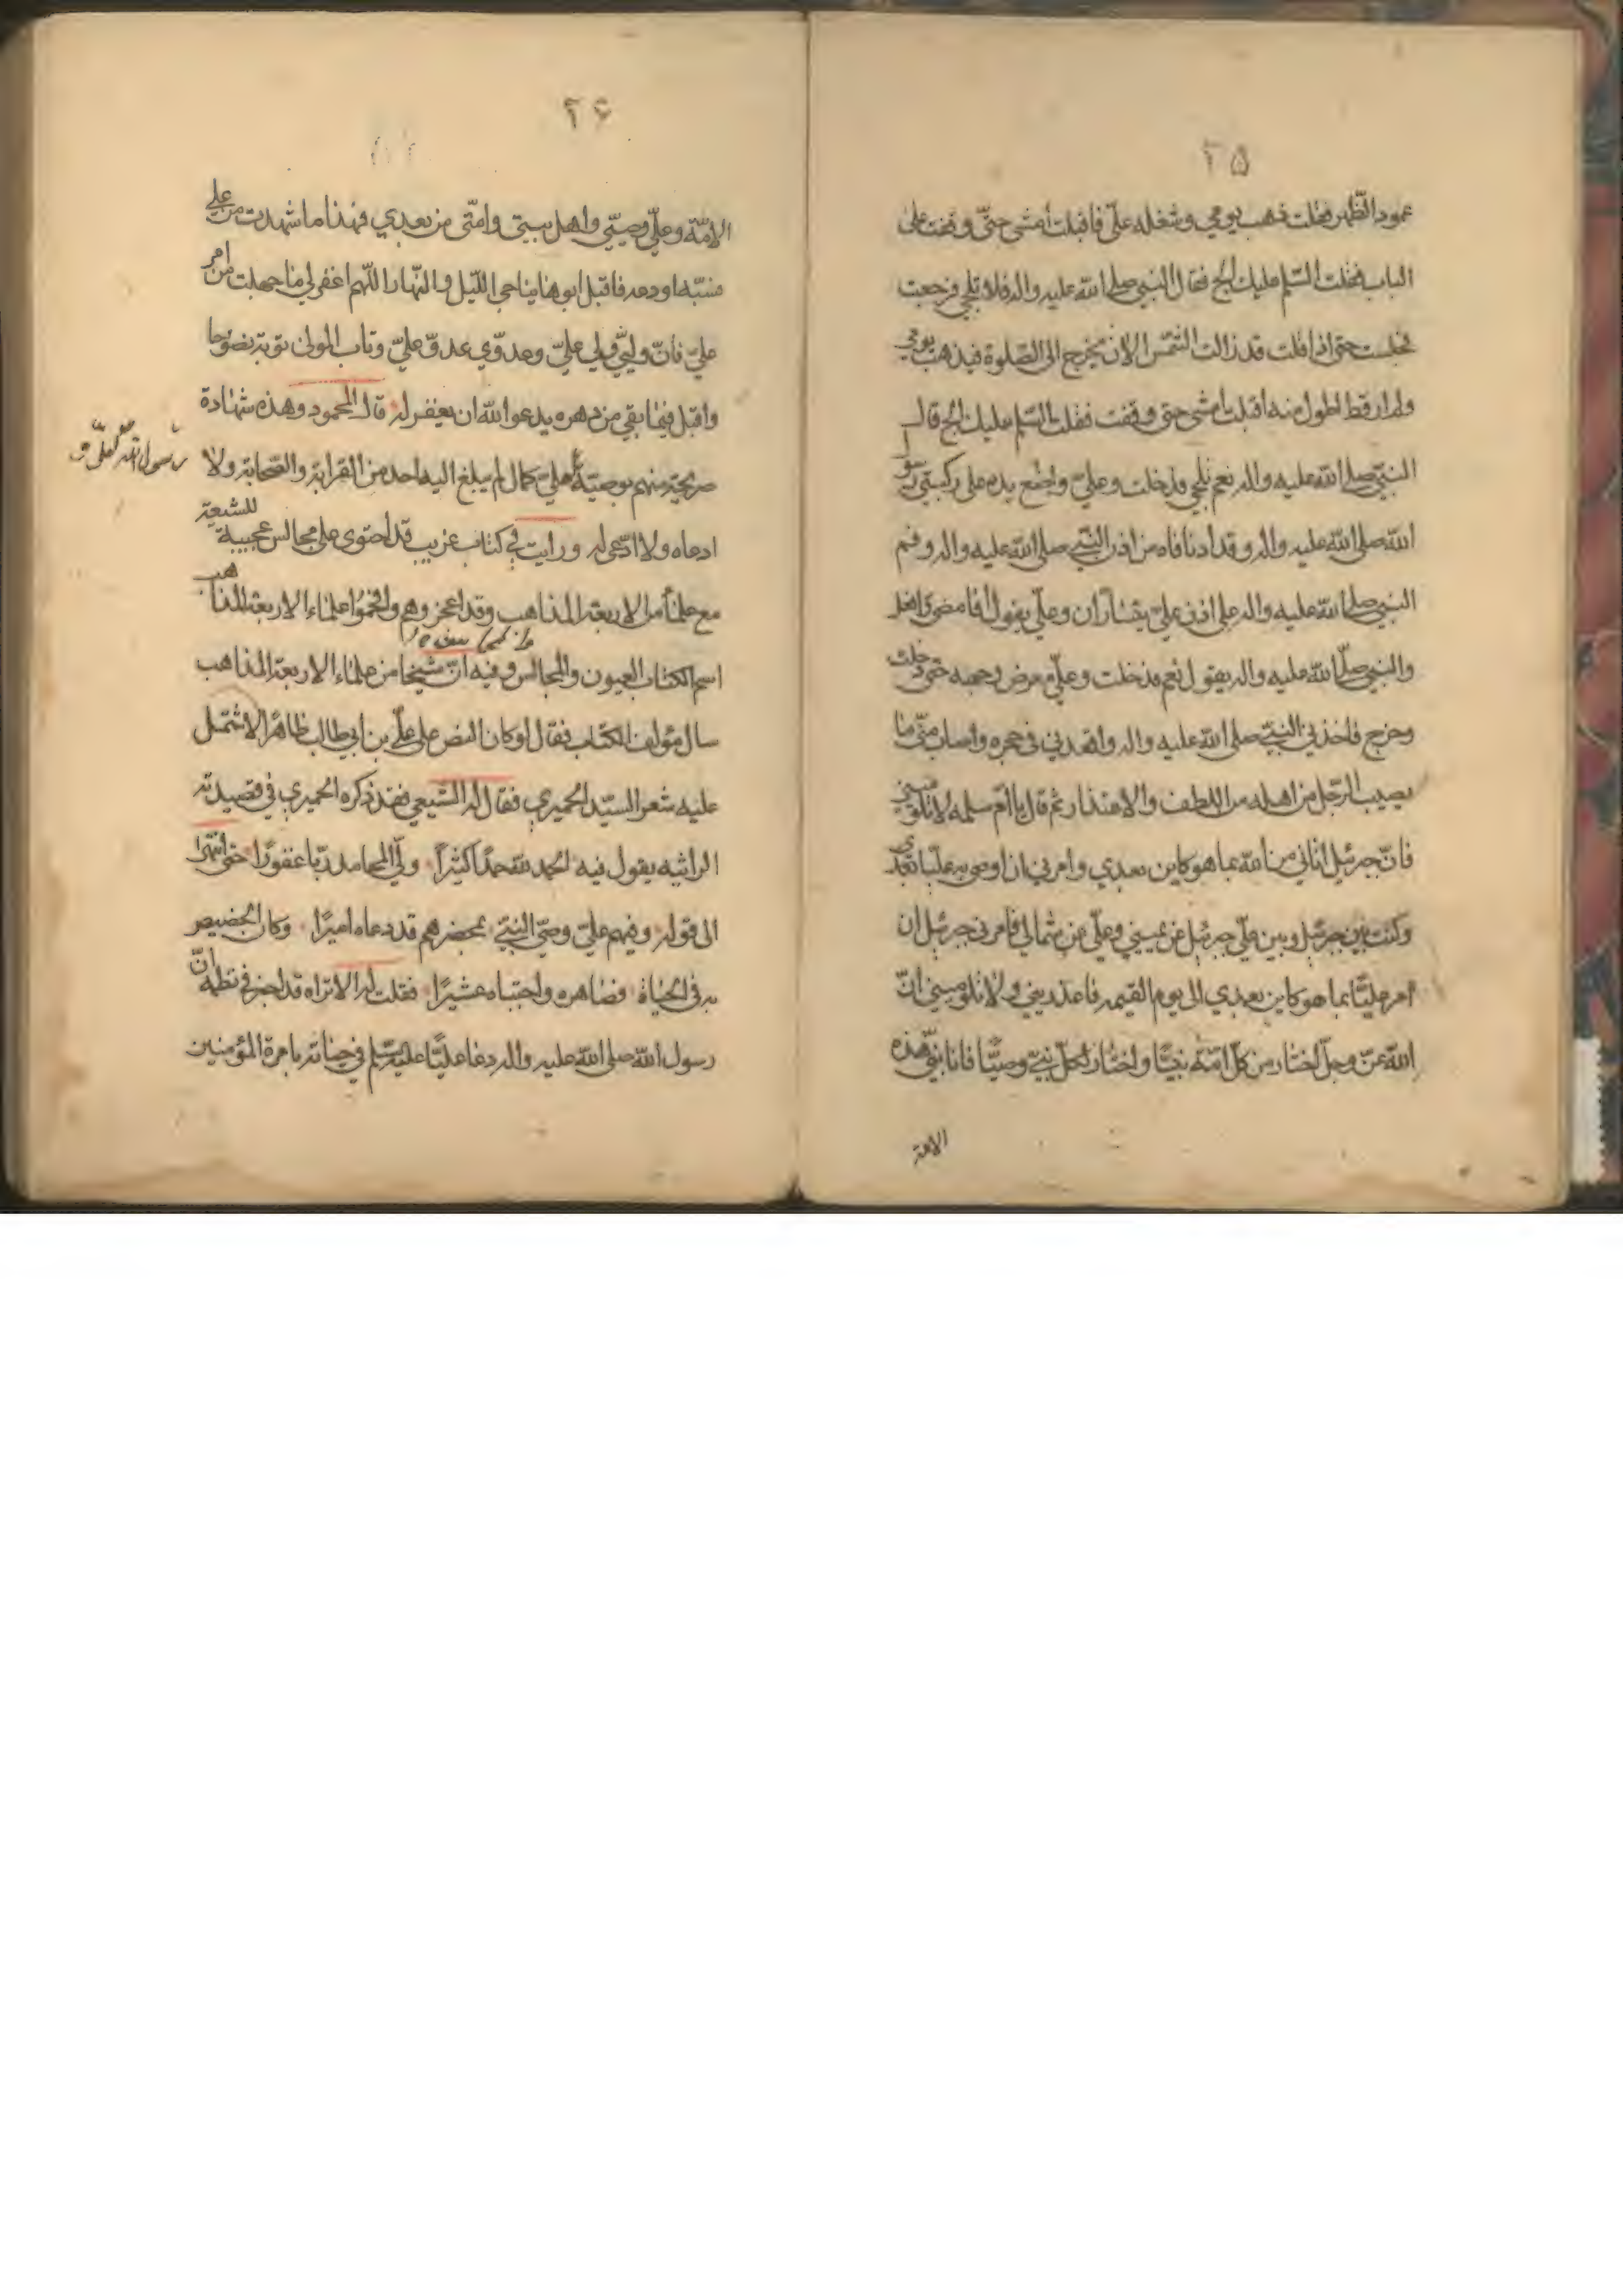 ۲۵
عمود الظهر فقلت ذهب يومي وشغله علي فاقبلت امشي حتى وقفت على
الباب فقلت السلم عليك الج فقال النبي صلى الله عليه واله فلا تلجي فرجعت
فجلست حتى اذا قلت قد زالت الشمس الان يخرج الى الصلوة فيذهب يومي
ولم ار قط اطول منه اقبلت امشي حتى وقفت فقلت السلم عليك الج قال
النبي صلى الله عليه واله نعم تلجي فدخلت وعلي واضع يده على ركبتي رسول
الله صلى الله عليه واله وقد ادنا فاه من اذن النبي صلى الله عليه واله وفم
النبي صلى الله عليه واله على اذن علي يتساران وعلي يقول افامضي وافعل
والنبي صلى الله عليه واله يقول نعم فدخلت وعلي معرض وجهه حتى دخلت
وخرج فاخذني النبي صلى الله عليه واله واقعدني في حجره واصاب مني ما
يصيب الرجل من اهله من اللطف والاعتذار ثم قال يا ام سلمه لا تلوميني
فان جبرئيل اتاني من الله بما هو كاين بعدي وامرني ان اوصي به عليا بعدي
وكنت بين جبرئيل وبين علي جبرئيل عن يميني وعلي عن شمالي فامرني جبرئيل ان
امر عليا بما هو كاين بعدي الى يوم القيمه فاعذريني ولا تلوميني ان
الله عز وجل اختار من كل امة نبيا واختار لكل نبي وصيا فانا نبي هذه
الامة
۲۶
الامة وعلي وصيي واهل بيتي وامتي من بعدي فهذا ما شهدت من علي
فسبه او دعه فاقبل ابوها يناجي الليل والنهار اللهم اغفر لي ما جهلت من امر
علي فان وليي ولي علي وعدوي عدو علي وتاب المولى توبة نصوحا
واقبل فيما بقي من دهره يدعو الله ان يغفر له قال المحمود وهذه شهادة
صريحة منهم بوصية لعلي كمال لم يبلغ اليه احد من القرابة والصحابة ولا
رسول الله لعلي و
ادعاه ولا ادعي له ورايت في كتاب غريب قد احتوى على مجالس عجيبة للشيعة
مع علماء من الاربعة المذاهب وقد اعجزوهم وافحموا علماء الاربعة المذاهب
اسم الكتاب العيون والمجالس وفيه ان شيخا من علماء الاربعة المذاهب
سال مؤلف الكتاب فقال لو كان النص على علي بن ابي طالب ظاهرا لاشتمل
عليه شعر السيد الحميري فقال له الشيعي فقد ذكره الحميري في قصيدته
الرائيه يقول فيه الحمد لله حمدا كثيرا ولي المحامد ربا غفورا حتى انتهى
الى قوله وفيهم علي وصي النبي بمحضرهم قد دعاه اميرا وكان الخصيص
به في الحياة فصاهره واجتباه عشيرا فقلت له الا تراه قد اخبر في نظمه ان
رسول الله صلى الله عليه واله دعا عليا عليه السلم في حياته بامرة المؤمنين